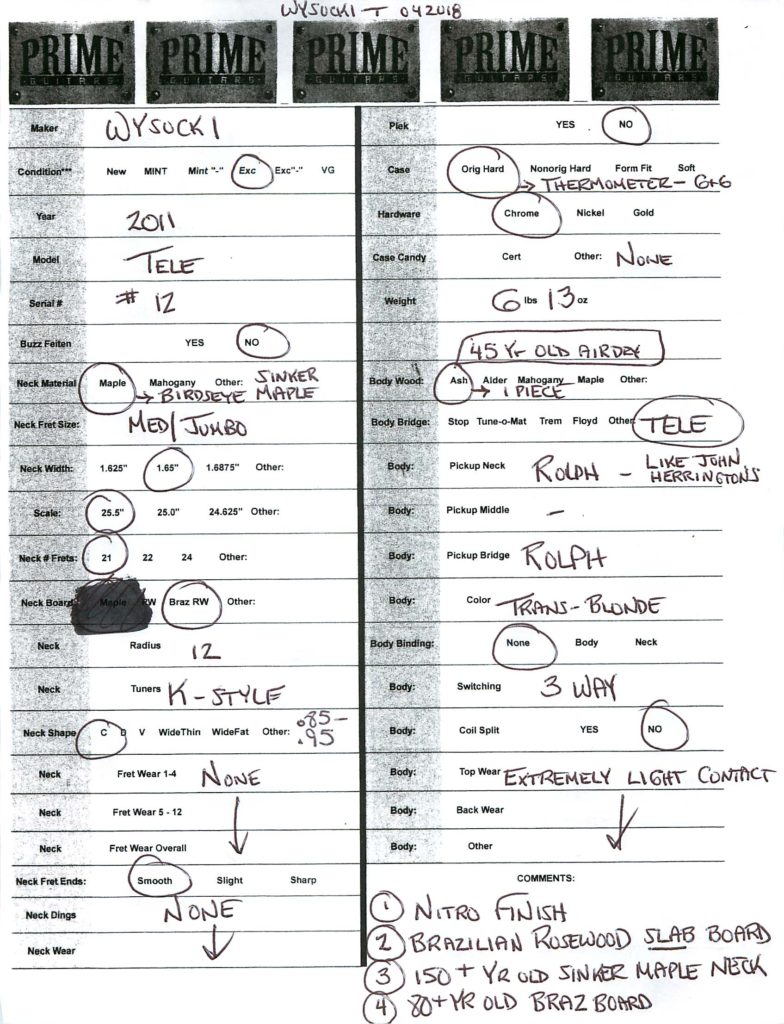 WYSOCKI-T 042018
PRIME GUITARS PRIME GUITARS PRIME GUITARS PRIME GUITARS PRIME GUITARS
Maker WYSOCKI
Condition*** New MINT Mint "-" Exc Exc"-" VG
Year 2011
Model TELE
Serial # # 12
Buzz Feiten YES NO
Neck Material Maple Mahogany Other: SINKER
→ BIRDSEYE MAPLE
Neck Fret Size: MED/JUMBO
Neck Width: 1.625" 1.65" 1.6875" Other:
Scale: 25.5" 25.0" 24.625" Other:
Neck # Frets: 21 22 24 Other:
Neck Board: Maple RW Braz RW Other:
Neck Radius 12
Neck Tuners K-STYLE
Neck Shape C D V WideThin WideFat Other: .85-
.95
Neck Fret Wear 1-4 NONE
Neck Fret Wear 5 - 12
Neck Fret Wear Overall
Neck Fret Ends: Smooth Slight Sharp
Neck Dings NONE
Neck Wear
Plek YES NO
Case Orig Hard Nonorig Hard Form Fit Soft
→ THERMOMETER - G+G
Hardware Chrome Nickel Gold
Case Candy Cert Other: NONE
Weight 6 lbs 13 oz
45 Yr OLD AIRDRY
Body Wood: Ash Alder Mahogany Maple Other:
→ 1 PIECE
Body Bridge: Stop Tune-o-Mat Trem Floyd Other TELE
Body: Pickup Neck ROLPH - LIKE JOHN
HERRINGTONS
Body: Pickup Middle -
Body: Pickup Bridge ROLPH
Body: Color TRANS-BLONDE
Body Binding: None Body Neck
Body: Switching 3 WAY
Body: Coil Split YES NO
Body: Top Wear EXTREMELY LIGHT CONTACT
Body: Back Wear
Body: Other
COMMENTS:
1 NITRO FINISH
2 BRAZILIAN ROSEWOOD SLAB BOARD
3 150+ YR OLD SINKER MAPLE NECK
4 80+YR OLD BRAZ BOARD